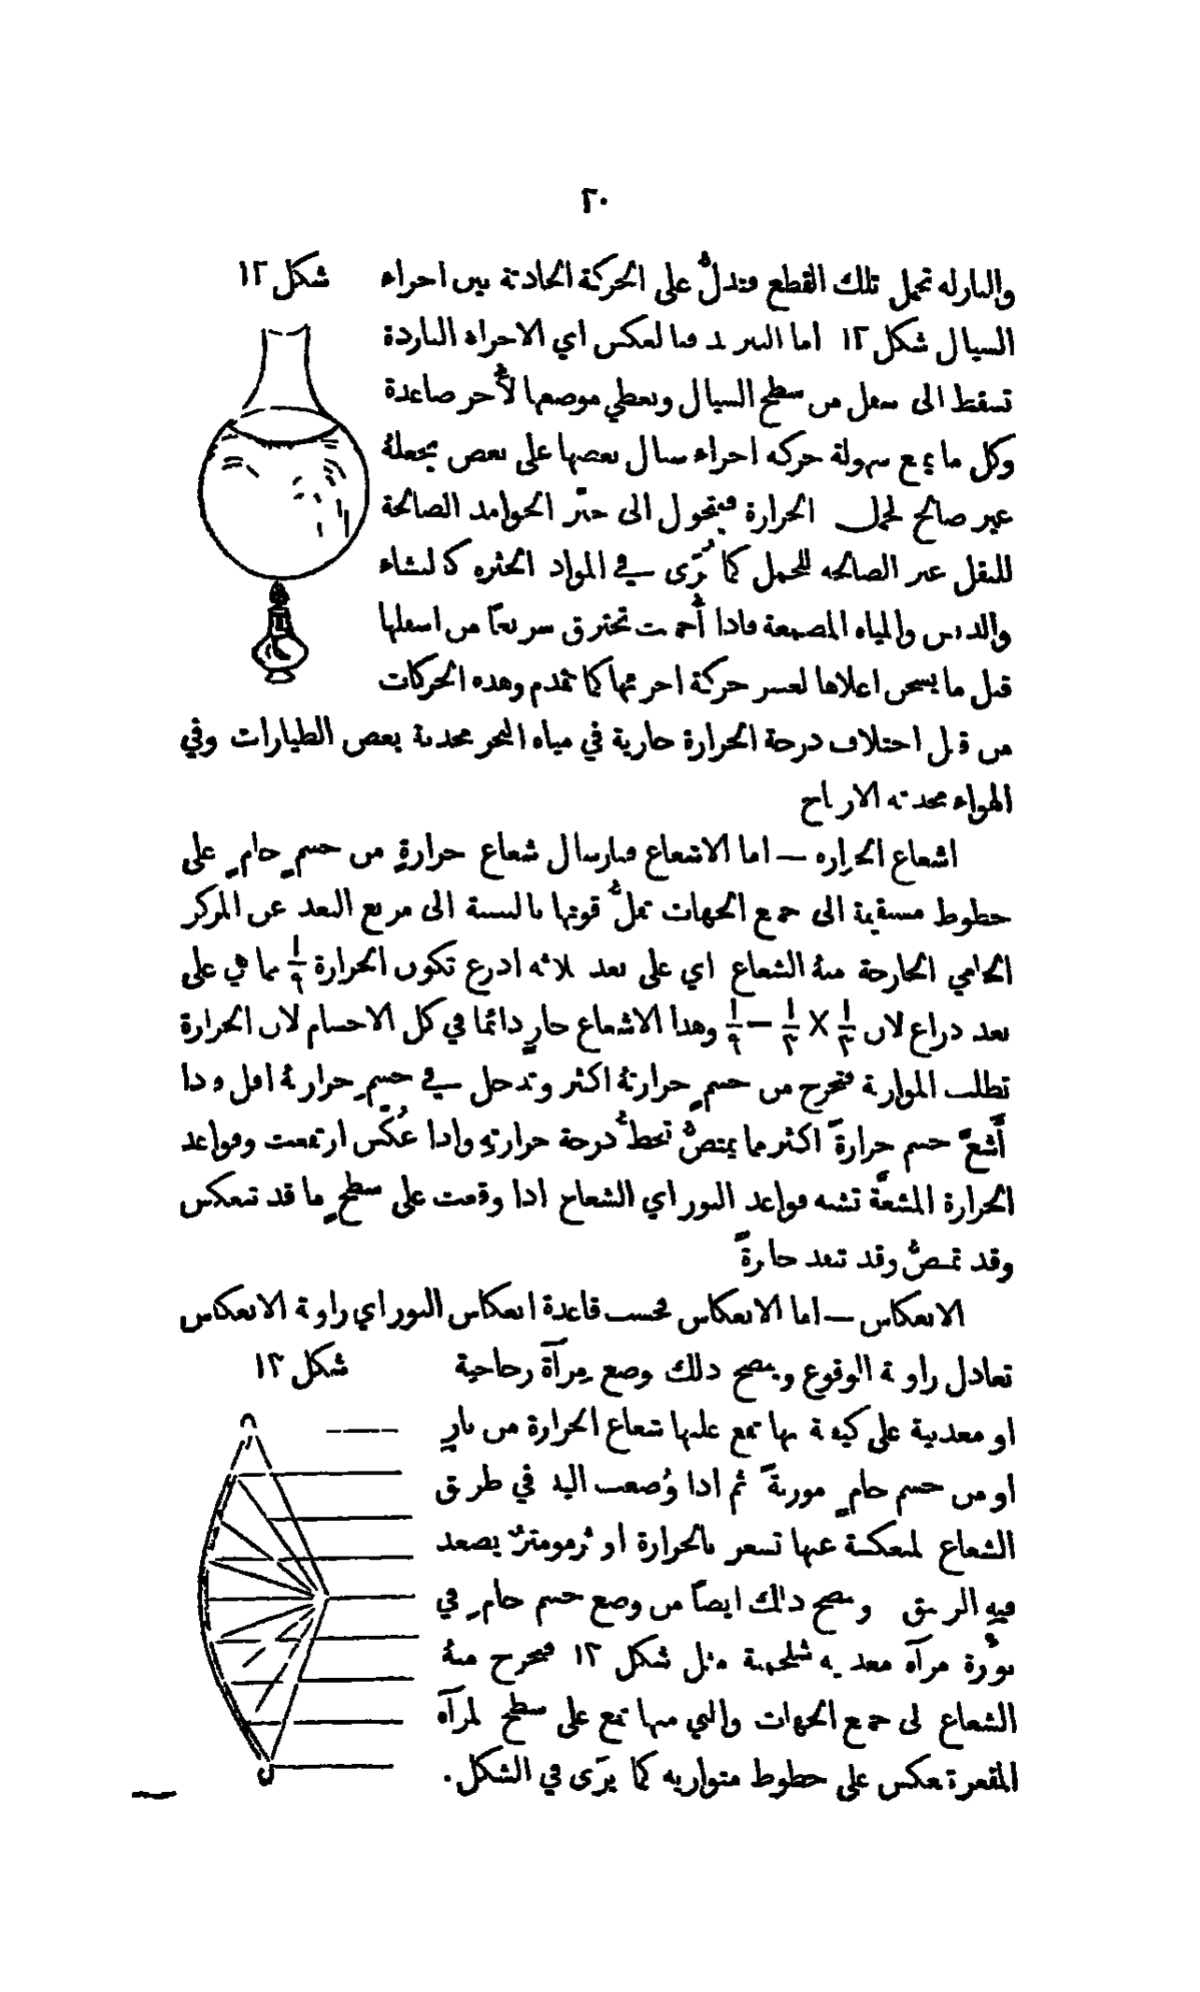 ٢٠
والنازله تحمل تلك القطع فتدلُّ على الحركة الحادثة بين اجزاء
شكل ١٢
السيال شكل ١٢ اما التبريد فبالعكس اي الاجزاء الباردة
تسقط الى سفل من سطح السيال وتعطي موضعها لأُخر صاعدة
وكل ما يمنع سهولة حركه اجزاء سيال بعضها على بعض يجعلهُ
غير صالح لحمل الحرارة فيتحول الى حيّز الجوامد الصالحة
للنقل غير الصالحه للحمل كما يُرَى في المواد الخثره كالنشاء
والدبس والمياه المصمغة فاذا أُحميت تحترق سريعًا من اسفلها
قبل ما يسخن اعلاها لعسر حركة اجزائها كما تقدم وهذه الحركات
من قبل اختلاف درجة الحرارة جارية في مياه البحر محدثة بعض الطيارات وفي
الهواء محدثه الارياح
اشعاع الحراره — اما الاشعاع فبارسال شعاع حرارةٍ من جسمٍ حامٍ على
خطوط مستقيمة الى جميع الجهات تقلُّ قوتها بالنسبة الى مربع البعد عن المركز
الحامي الخارجة منهُ الشعاع اي على بعد ثلاثه اذرع تكون الحرارة ١/٩ مما هي على
بعد ذراع لان ١/٣ × ١/٣ — ١/٩ وهذا الاشعاع جارٍ دائمًا في كل الاجسام لان الحرارة
تطلب الموازنة فتخرج من جسمٍ حرارتهُ اكثر وتدخل في جسمٍ حرارتهُ اقل وذا
أَشعَّ جسم حرارةً اكثر مما يمتصُّ تحطُّ درجة حرارتهِ واذا عُكِس ارتفعت وقواعد
الحرارة المشعَّة تشبه قواعد النور اي الشعاع اذا وقعت على سطحٍ ما قد تنعكس
وقد تمتصُّ وقد تنفد حارةً
الانعكاس — اما الانعكاس فحسب قاعدة انعكاس النور اي زاوية الانعكاس
تعادل زاوية الوقوع ويتضح ذلك بوضع مِرآة زجاجية
شكل ١٣
او معدنية على كيفية بها تقع عليها شعاع الحرارة من نارٍ
او من جسم حامٍ مورثةً ثم اذا وُضعت اليد في طريق
الشعاع المنعكسة عنها تشعر بالحرارة او ثرمومترٌ يصعد
فيهِ الزيبق ويتضح ذلك ايضًا من وضع جسم حامٍ في
بؤرة مرآه معدنيه شلجمية مثل شكل ١٣ فتخرج منهُ
الشعاع الى جميع الجهات والتي منها تقع على سطح المرآه
المقعرة تنعكس على خطوط متوازيه كما يرَى في الشكل.